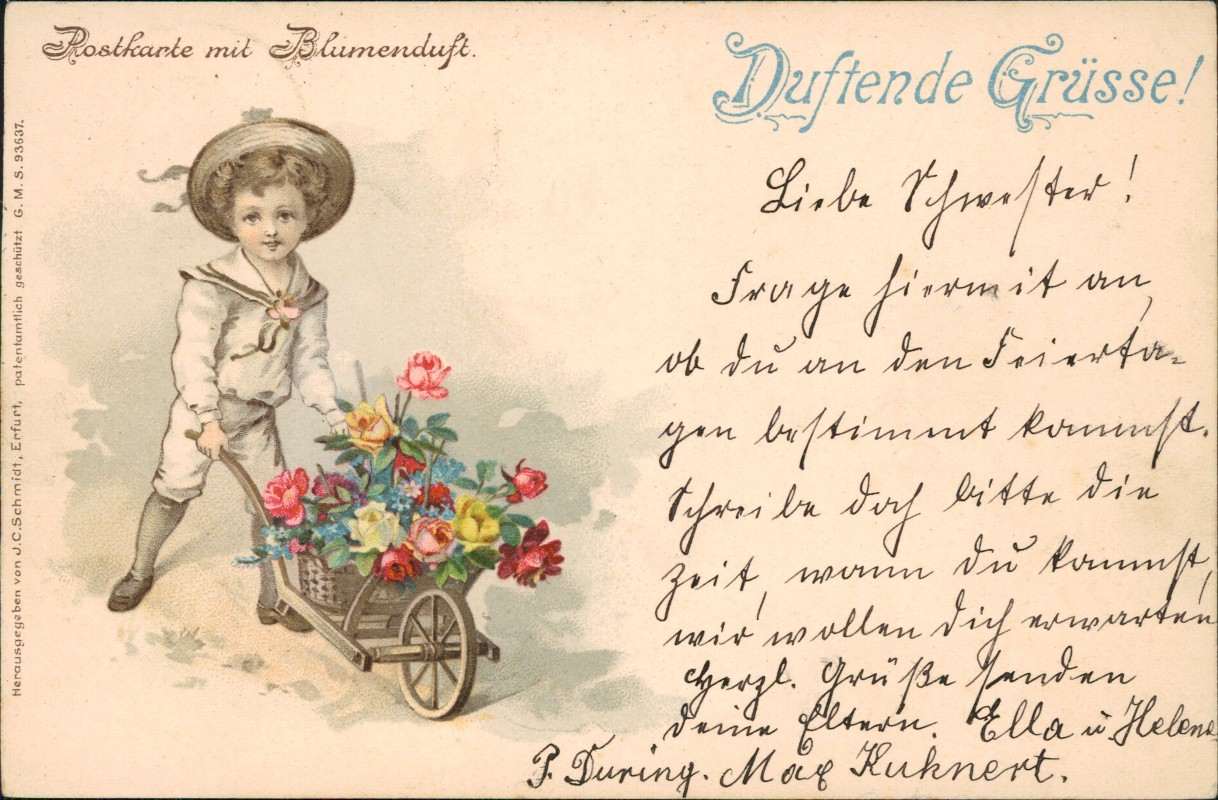 Postkarte mit Blumenduft.
Duftende Grüsse!
Herausgegeben von J.C.Schmidt, Erfurt, patentamtlich geschützt G. M. S. 93637.
Liebe Schwester!
Frage hiermit an,
ob du an den Feierta-
gen bestimmt kommst.
Schreibe doch bitte die
Zeit, wann du kommst,
wir wollen dich erwarten
Herzl. Grüße senden
deine Eltern. Ella u. Helene
P. During. Max Kuhnert.